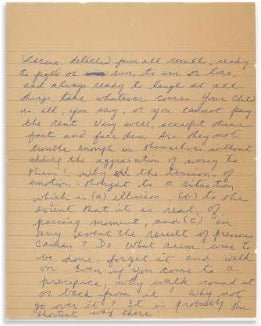 Become detached from all results, ready
to fight or run, to win or lose,
and always ready to laugh at all
things, take whatever comes. Your child
is ill, you say, or you cannot pay
the rent. Very well, accept these
facts and face them. Are they not
trouble enough in themselves without
adding the aggravation of worry to
them? Why add the tension of
emotion-thought to a situation
which is (a) illusion, (b) to the
extent that it is real, of
passing moment, and (c) in
any event the result of previous
causes? Do what seems best to
be done, forget it and walk
on. Even if you come to a
precipice, why walk round it
or back from it? Why not
go over it? It is probably the
shortest way there.